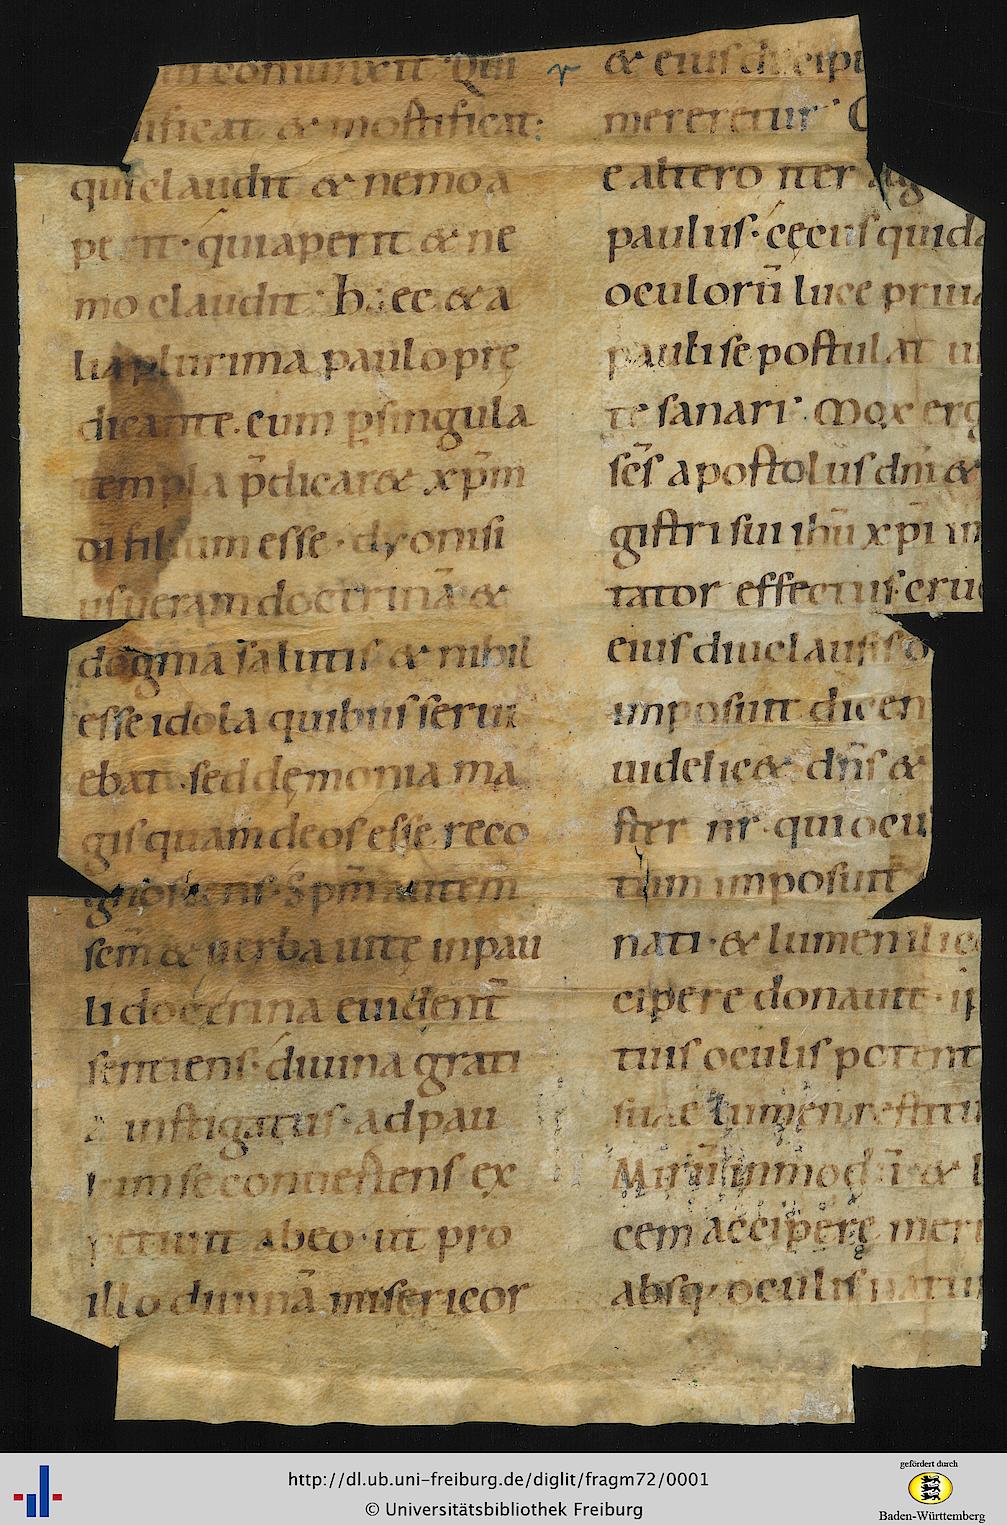 coniunxit Qui
uificat & mortificat:
qui claudit & nemo a
perit· quia perit & ne
mo claudit· haec & a
lia plurima paulo prę
dicante. eum p̱ singula
templa p̄dicar& xp̄m
dī filium esse· dyonisi
us ueram doctrinā &
dogma salutis & nihil
esse idola quibus serui
ebat· sed dęmonia ma
gis quam deos esse reco
gnoscens· S pm̄ autem
sem̄ & uerba uitę in pau
li doctrina euident̄
sentiens· diuina grati
a instigatus· ad pau
lum se conuertens ex
petiuit ab eo· ut pro
illo diuinā misericor
& eius discipu
mereretur·
e altero iter
paulus· cęcus quida
oculorū luce priua
pauli se postulat
te sanari· Mox erg
sēs apostolus dnī &
gistri sui ihū xpī im
tator effectus· cru
eius diu clausis o
imposuit dicen
uidelic& dn̄s &
ster nr̄· qui ocu
tum imposuit
nati· & lumen illi
cipere donauit·
tuis oculis potent
suae lumen restitu
Mirū inmodū· &
cem accipere meru
absq; oculis natu
http://dl.ub.uni-freiburg.de/diglit/fragm72/0001
© Universitätsbibliothek Freiburg
gefördert durch
Baden-Württemberg